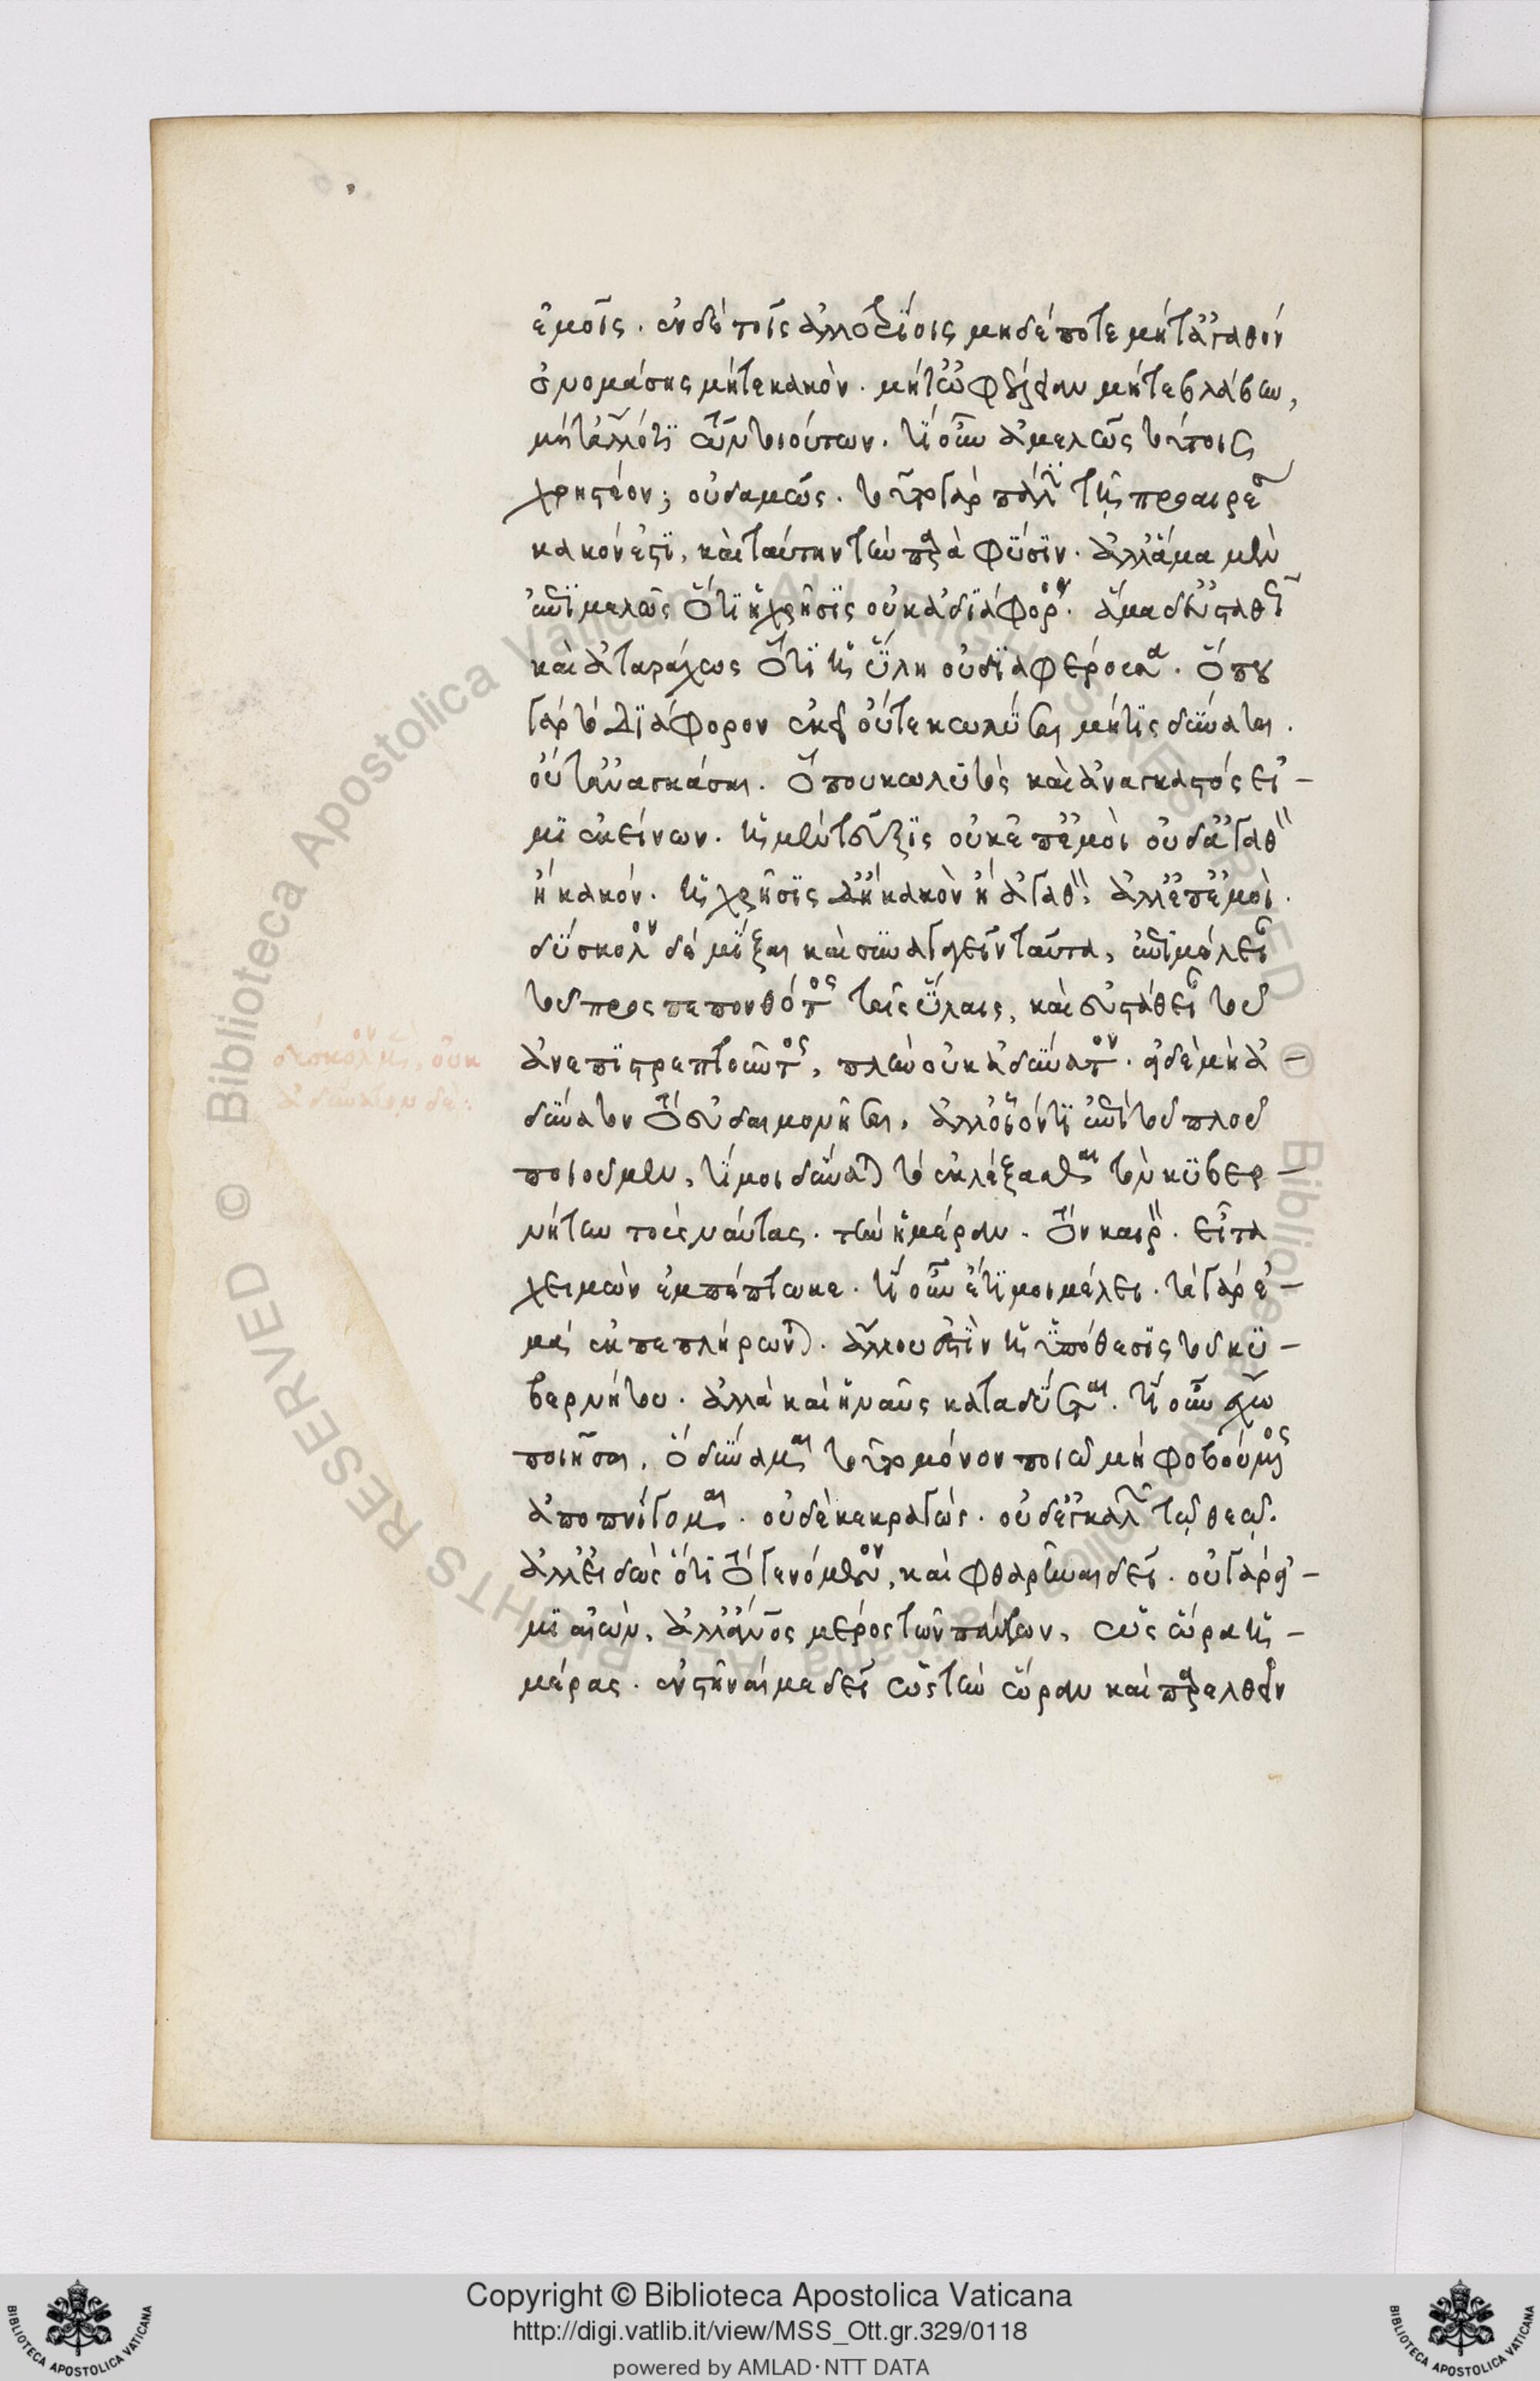 ἐμοῖς. ἐν δὲ τοῖς ἀλλοτρίοις μηδέποτε μήτ' ἀγαθὸν
ὀνομάσῃς μήτε κακὸν. μήτ' ὠφέλειαν μήτε βλάβην,
μήτ' ἄλλό τι τῶν τοιούτων. τί οὖν ἀμελῶς τούτοις
χρηστέον; οὐδαμῶς. τοῦτο γὰρ πάλιν τῇ προαιρέσει
κακόν ἐστι, καὶ ταύτην τὴν παρὰ φύσιν. ἀλλ' ἅμα μὲν
ἐπιμελῶς ὅτι ἡ χρῆσις οὐκ ἀδιάφορον. ἅμα δ' εὐσταθῶς
καὶ ἀταράχως ὅτι ἡ ὕλη οὐ διαφέρουσα. ὅπου
γὰρ τὸ διάφορον ἐκεῖ οὔτε κωλῦσαί μή τις δύναται.
οὔτ' ἀναγκάσαι. ὅπου κωλυτὸς καὶ ἀναγκαστός εἰ-
μι ἐκείνων. ἡ μὲν τεῦξις οὐκ ἐπ' ἐμοὶ οὐδ' ἀγαθὸν
ἢ κακόν. ἡ χρῆσις δ' ἢ κακὸν ἢ ἀγαθὸν, ἀλλ' ἐπ' ἐμοί.
δύσκολον δὲ μῖξαι καὶ συναγαγεῖν ταῦτα, ἐπιμέλειαν
τοῦ προσπεπονθότος ταῖς ὕλαις, καὶ εὐστάθειαν τοῦ
ἀνεπιστρεπτοῦντος, πλὴν οὐκ ἀδύνατον. εἰ δὲ μὴ ἀ-
δύνατον τὸ εὐδαιμονῆσαι, ἀλλ' οἷόν τι ἐπὶ τοῦ πλοῦ
ποιοῦμεν, τί μοι δύναται τὸ ἐκλέξασθαι τὸν κυβερ-
νήτην τοὺς ναύτας. τὴν ἡμέραν. τὸν καιρόν. εἶτα
χειμὼν ἐμπέπτωκε. τί οὖν ἔτι μοι μέλει. τὰ γὰρ ἐ-
μὰ ἐκπεπλήρωται. ἄλλου ἐστὶν ἡ ὑπόθεσις τοῦ κυ-
βερνήτου. ἀλλὰ καὶ ἡ ναῦς καταδύεται. τί οὖν ἔχω
ποιῆσαι, ὃ δύναμαι τοῦτο μόνον ποιῶ μὴ φοβούμενος
ἀποπνίγομαι. οὐδὲ κεκραγὼς. οὐδ' ἐγκαλῶν τῷ θεῷ.
ἀλλ' εἰδὼς ὅτι τὸ γενόμενον, καὶ φθαρῆναι δεῖ. οὐ γάρ εἰ-
μι αἰὼν, ἀλλ' ἄνθρωπος μέρος τῶν πάντων, ὡς ὥρα ἡ-
μέρας. ἐνστῆναί με δεῖ ὡς τὴν ὥραν καὶ παρελθεῖν
δύσκολον μὲν, οὐκ
ἀδύνατον δέ:
Copyright © Biblioteca Apostolica Vaticana
http://digi.vatlib.it/view/MSS_Ott.gr.329/0118
powered by AMLAD·NTT DATA